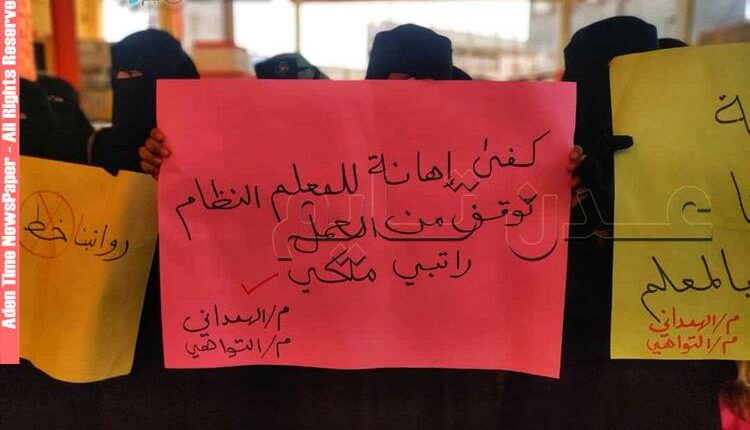 Aden Time NewsPaper - All Rights Reserve
عدن تايم
كفى إهانة للمعلم النظام
توقف من العمل
راتبي ملكي
م/الهمداني
م/التواهي
رواتبنا خط
بالمعلم
م/الهمداني
م/التواهي